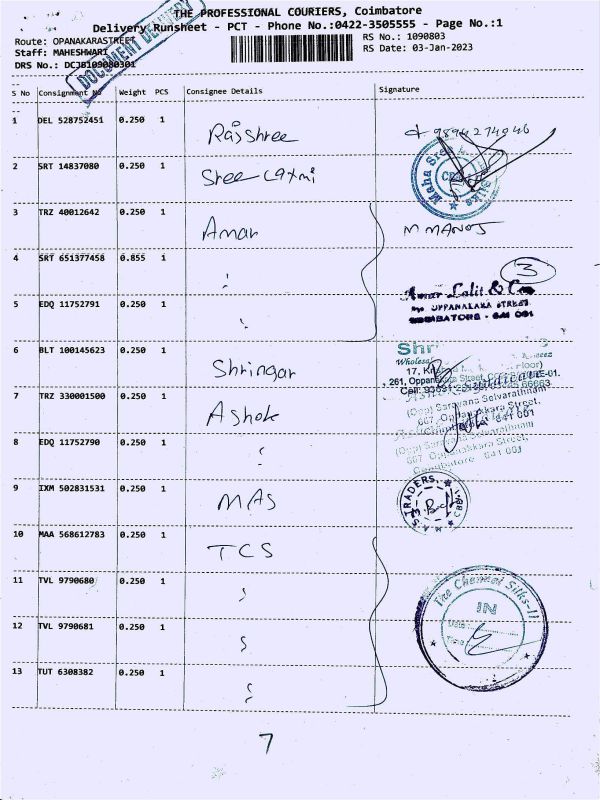 THE PROFESSIONAL COURIERS, Coimbatore
Delivery Runsheet - PCT - Phone No.:0422-3505555 - Page No.:1
Route: OPANAKARASTREET
RS No.: 1090803
Staff: MAHESHWARI
RS Date: 03-Jan-2023
DRS No.: DCJ8109080301
DOCUMENT DELIVERY
S No Consignment No Weight PCS Consignee Details Signature
1 DEL 528752451 0.250 1 Rajshree
2 SRT 14837080 0.250 1 Sree Laxmi
Maha Sree
3 TRZ 40012642 0.250 1 Amar M MANOJ
4 SRT 651377458 0.855 1 "
3
Amar Lalit & Co
OPPANAKARA STREET
COIMBATORE - 641 001
5 EDQ 11752791 0.250 1 "
6 BLT 100145623 0.250 1 Shringar
Shr
7 TRZ 330001500 0.250 1 Ashok
(Opp) Saravana Selvarathnam
667, Oppanakkara Street,
Coimbatore 641 001
8 EDQ 11752790 0.250 1 "
(Opp) Saravana Selvarathnam
667 Oppanakkara Street,
Coimbatore 641 001
9 IXM 502831531 0.250 1 MAS
M.A.S. TRADERS
10 MAA 568612783 0.250 1 TCS
11 TVL 9790680 0.250 1 "
The Chennai Silks-II
IN
Date
Time
12 TVL 9790681 0.250 1 "
13 TUT 6308382 0.250 1 "
7